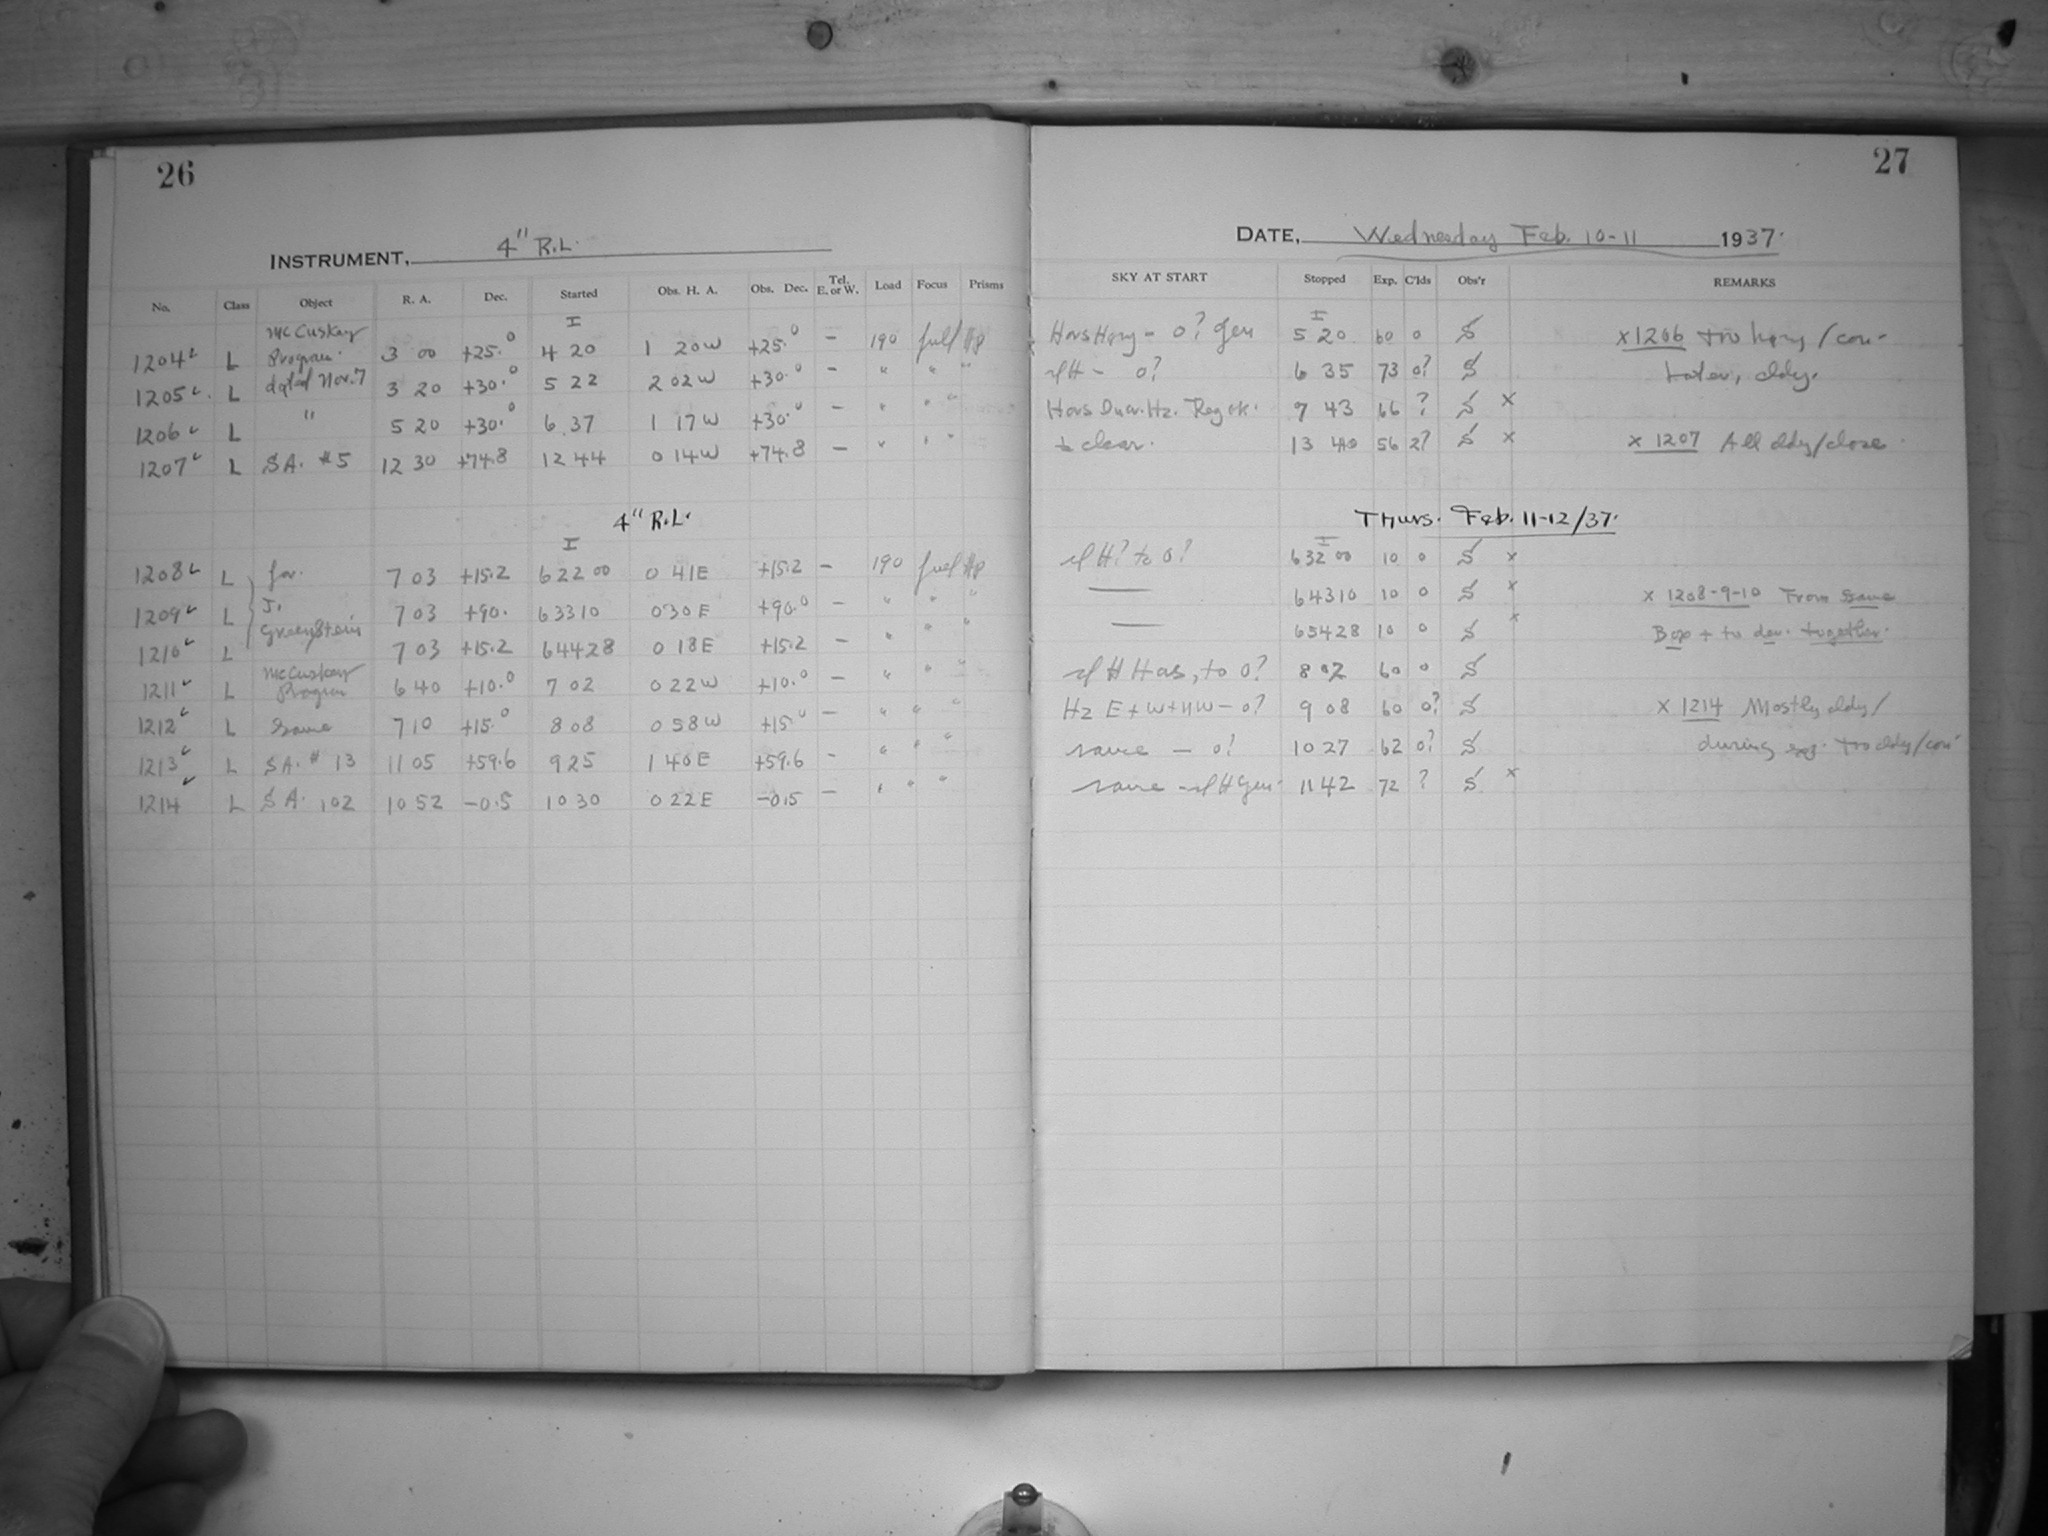 26
INSTRUMENT, 4" R.L.
No. Class Object R. A. Dec. Started Obs. H. A. Obs. Dec. Tel. E. or W. Load Focus Prisms
I
McCuskey
1204 L Program. 3 00 +25.0 4 20 1 20W +25.0 - 190 full
1205 L dated Nov. 7 3 20 +30.0 5 22 2 02W +30.0 - " " "
1206 L " 5 20 +30.0 6 37 1 17W +30.0 - " " "
1207 L S.A. #5 12 30 +74.8 12 44 0 14W +74.8 - " " "
4" R.L.
I
1208 L for 7 03 +15.2 6 22 00 0 41E +15.2 - 190 full
1209 L J. 7 03 +90. 6 33 10 0 30E +90.0 - " " "
Greenstein
1210 L 7 03 +15.2 6 44 28 0 18E +15.2 - " " "
McCuskey
1211 L Program 6 40 +10.0 7 02 0 22W +10.0 - " " "
1212 L Same 7 10 +15.0 8 08 0 58W +15.0 - " " "
1213 L S.A. # 13 11 05 +59.6 9 25 1 40E +59.6 - " " "
1214 L S.A. 102 10 52 -0.5 10 30 0 22E -0.5 - " " "
27
DATE, Wednesday Feb. 10-11 1937.
SKY AT START Stopped Exp. C'lds Obs'r REMARKS
I
- 0? Gen 5 20 60 0 S x 1206 too hazy/con-
H - 0? 6 35 73 0? S cldy.
7 43 66 ? S x
to clear. 13 40 56 2? S x x 1207 All cldy/close
Thurs. Feb. 11-12/37.
I
H? to 0? 6 32 00 10 0 S x
— 6 43 10 10 0 S x x 1208-9-10 From same
— 6 54 28 10 0 S x Box + to dev. together.
H Has, to 0? 8 02 60 0 S
Hz E+W+NW - 0? 9 08 60 0? S x 1214 Mostly cldy/
same - 0? 10 27 62 0? S during exp. too cldy/con
same - H Gen. 11 42 72 ? S x